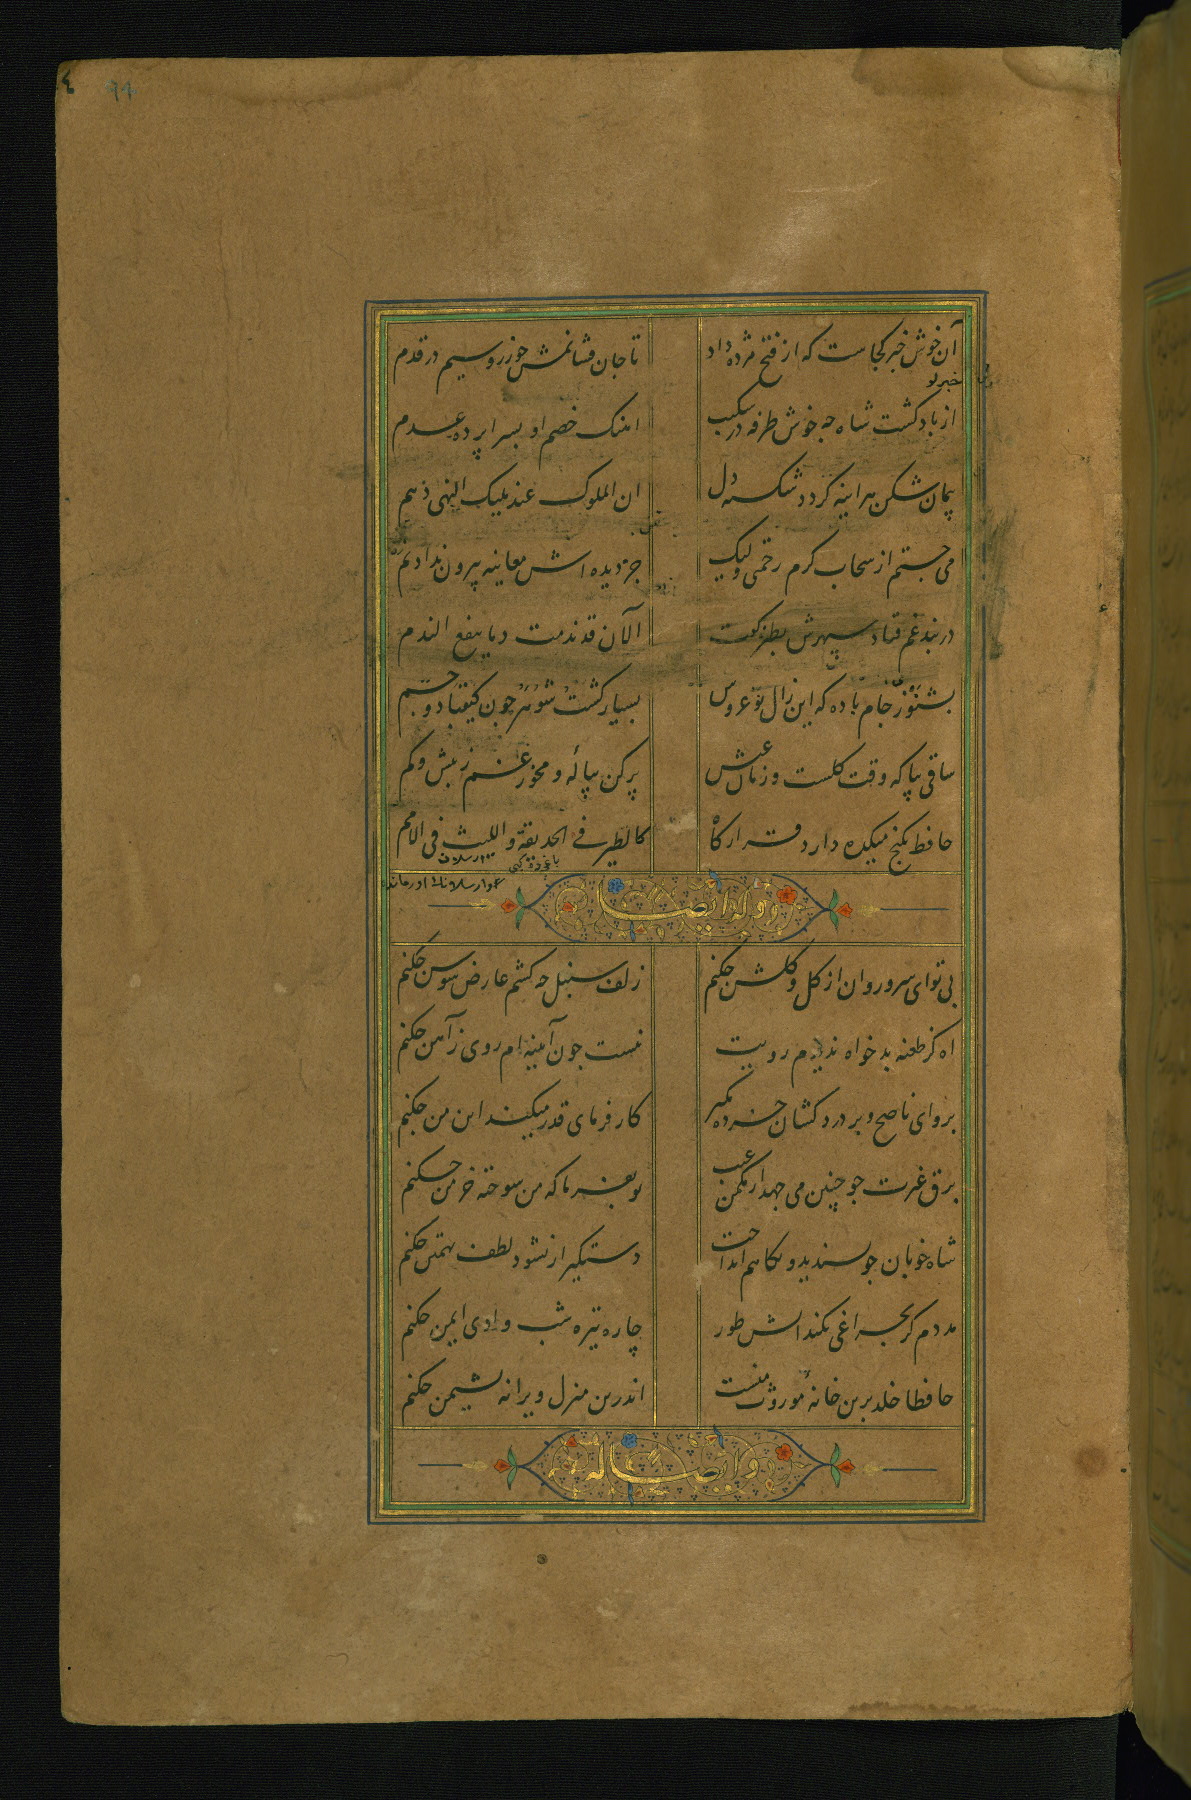 ٩٩
آن خوش خبر کجاست که از فتح مژده داد
تا جان فشانمش چو زر و سیم در قدم
از بازگشت شاه چه خوش طرفه در سکب
اهنک خصم او بسرا پرده عدم
پیمان شکن هراینه کردد شکسته دل
ان الملوک عند ملیک النهی ذمم
می جستم از سحاب کرم رحمتی ولیک
جز دیده اش معاینه بیرون نداد نم
در بند غم فتاد سپهرش بطنز کفت
الآن قد ندمت و ما ینفع الندم
بشنو ز جام باده که این زال نو عروس
بسیار کشت شوهر چون کیقباد و جم
ساقی بیا که وقت کلست و زمان عیش
پر کن پیاله و مخور غم ز بیش و کم
حافظ بکنج میکده دارد قرارکاه
کالطیر فی الحدیقة و اللیث فی الاجم
وله ایضا
بی تو ای سرو روان از کل و کلشن چکنم
زلف سنبل چه کشم عارض سوسن چکنم
اه کز طعنه بدخواه ندیدم رویت
نیست چون آینه ام روی ز آهن چکنم
برو ای ناصح و بر درد کشان خرده مکیر
کار فرمای قدر میکند این من چکنم
برق غیرت چو چنین می جهد از مکمن غیب
تو بفرما که من سوخته خرمن چکنم
شاه خوبان چو پسندید و بچاهم انداخت
دستکیر ار نشود لطف تهمتن چکنم
مددم کر بچراغی نکند اتش طور
چاره تیره شب وادی ایمن چکنم
حافظا خلد برین خانه موروث منست
اندرین منزل ویرانه نشیمن چکنم
و ایضا له